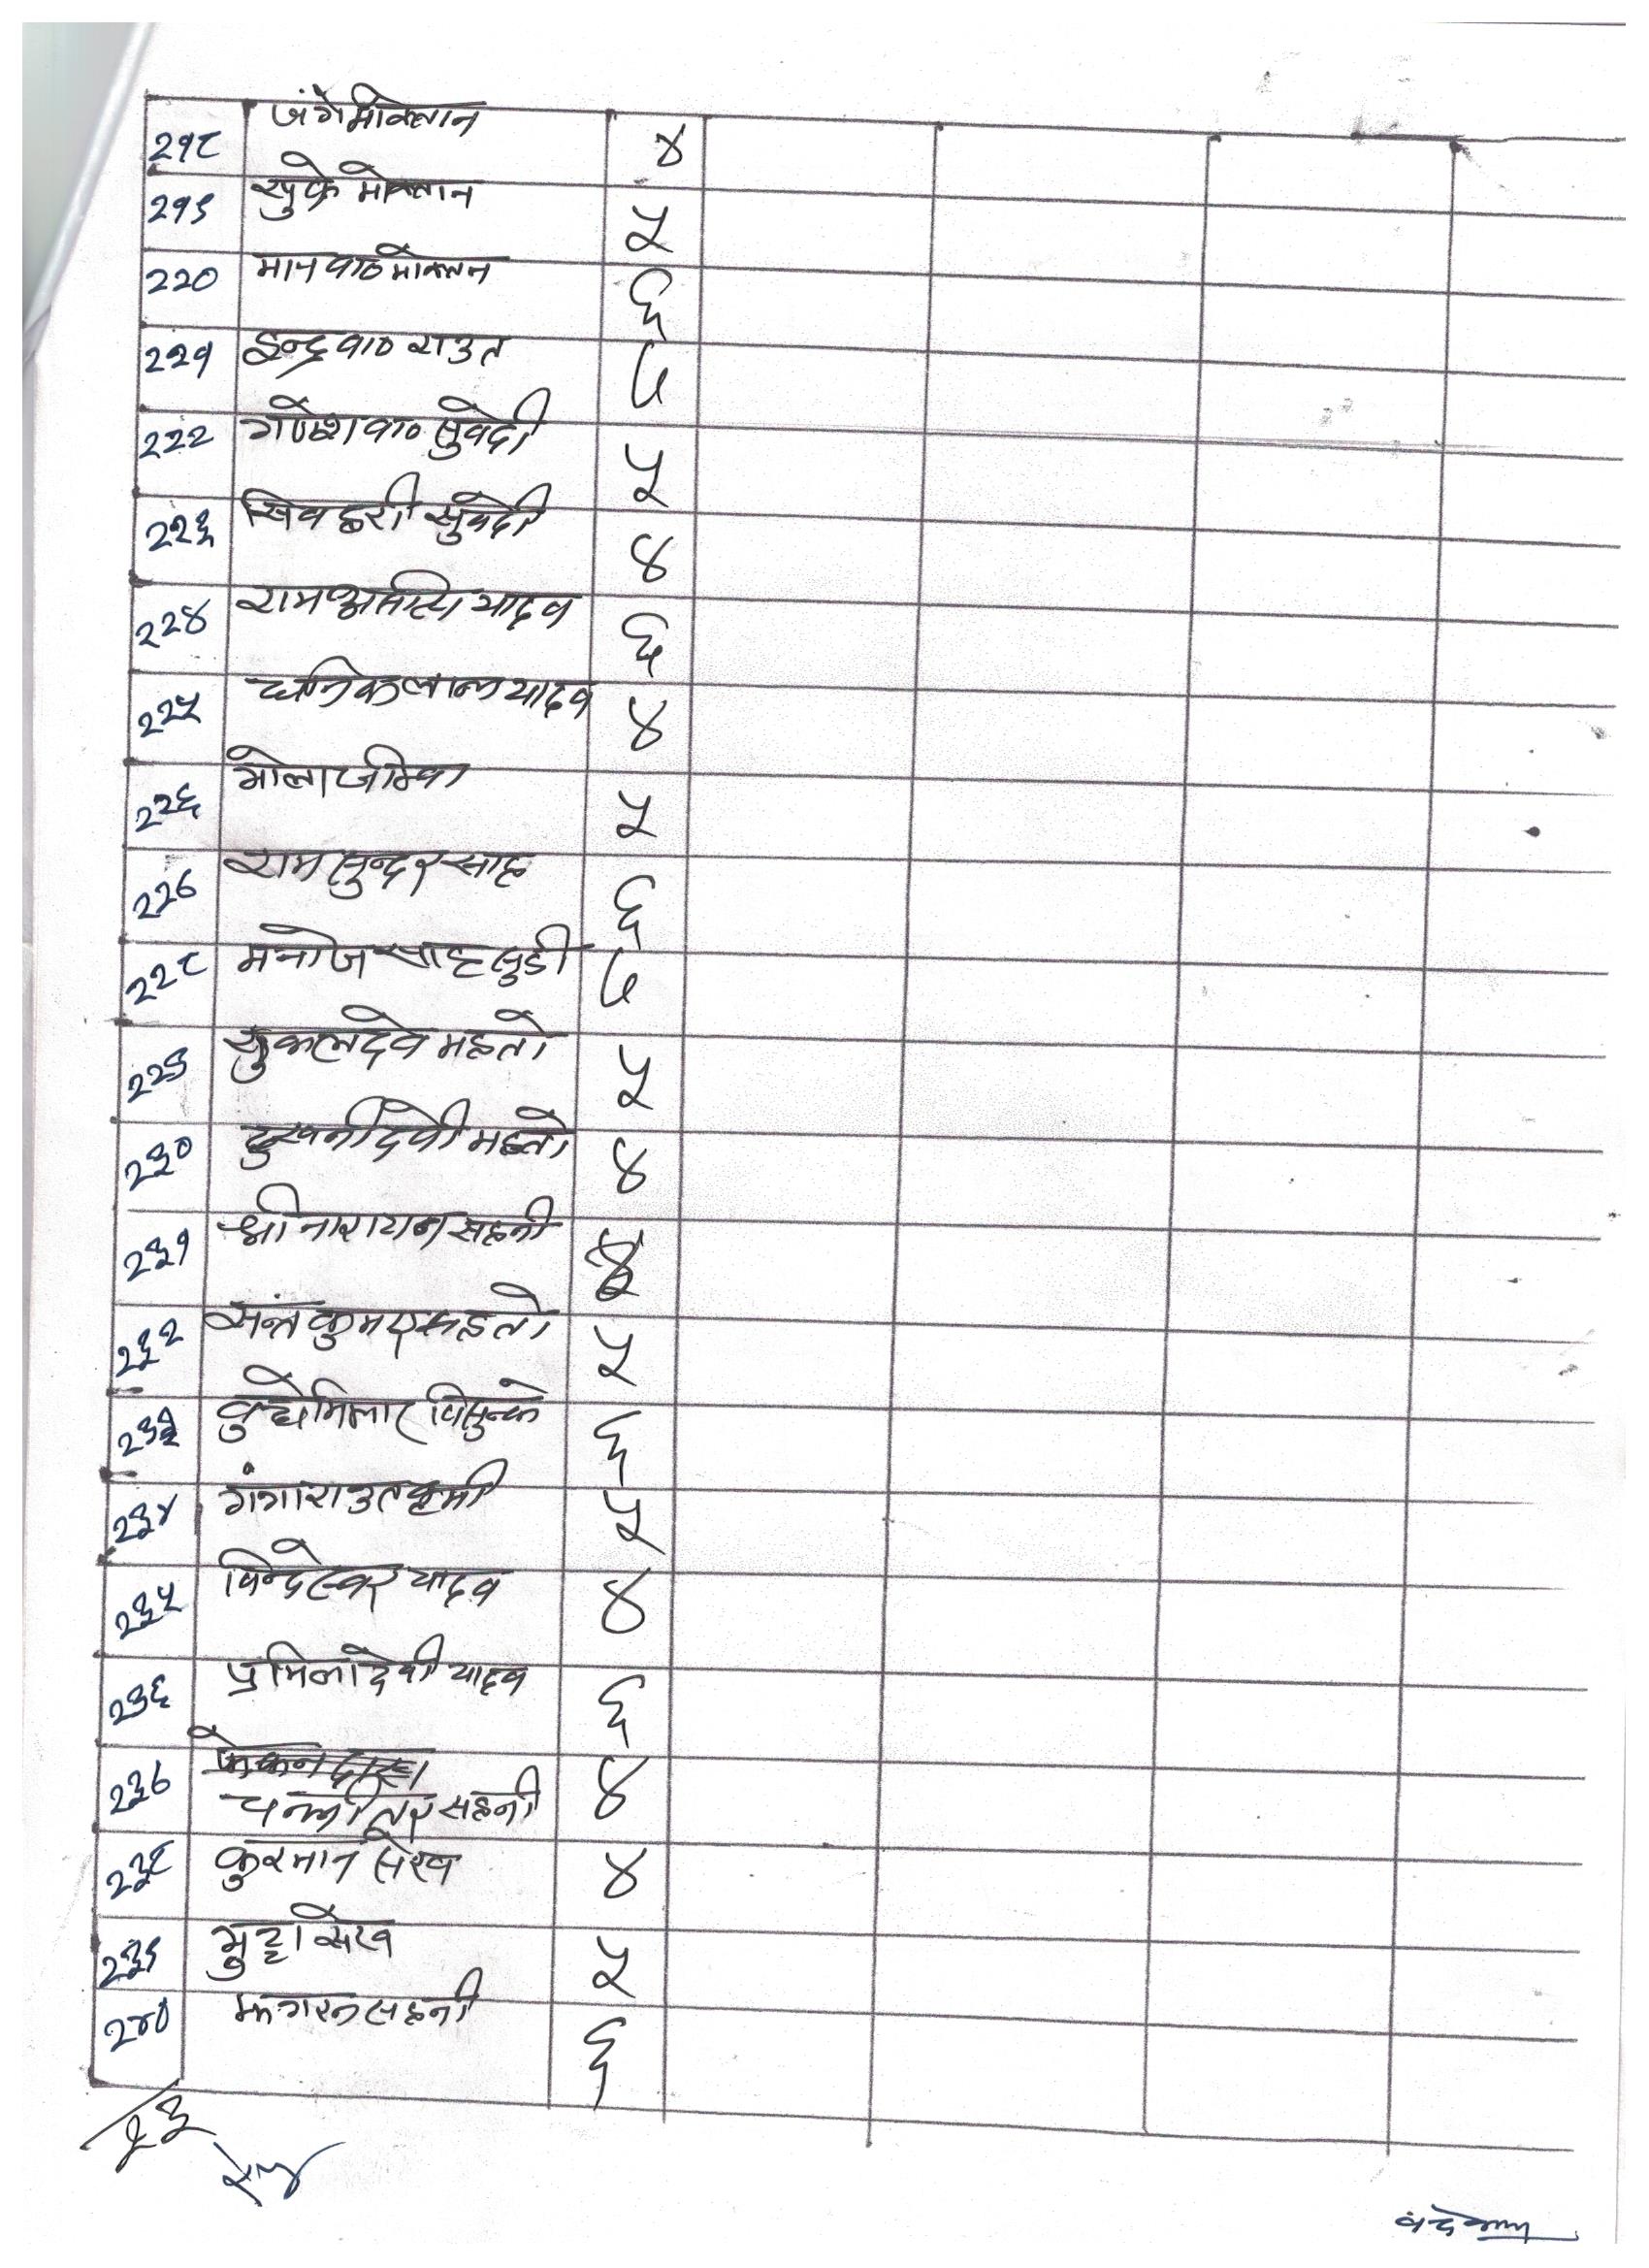 २१८ जंगे मोक्तान ४
२१९ सुके मोक्तान ५
२२० मान वा० मोक्तान ६
२२१ इन्द्र वा० राउत ७
२२२ गणेश वा० सुवेदी ५
२२३ सिव हरी सुवेदी ४
२२४ राम यादव ६
२२५ धनिकलाल यादव ४
२२६ भोला जिम्वा ५
२२७ राम सुन्दर साह ६
२२८ मनोज साह सुडी ७
२२९ सुकलदेव महतो ५
२३० दुखनीदेवी महतो ४
२३१ श्री नारायन सहनी
२३२ सन्त कुमार महतो ५
२३३ ६
२३४ गंगा राउत कुर्मी ५
२३५ विन्देस्वर यादव ४
२३६ प्रमिला देवी यादव ६
२३७ फेकन दास ४
सहनी
२३८ कुरमान सेख ४
२३९ भुट्टा सेख ५
२४० झगरन सहनी ६
२३